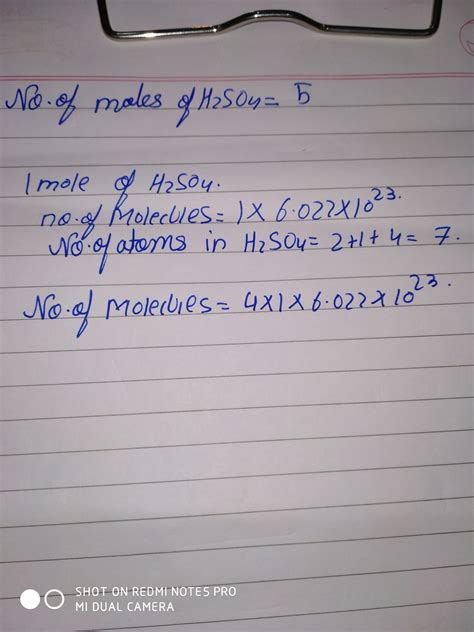 No. of moles of H2SO4 = 5
1 mole of H2SO4.
no. of Molecules = 1 X 6.022 X 10^23.
No. of atoms in H2SO4 = 2+1+4 = 7.
No. of Molecules = 4 X 1 X 6.022 X 10^23.
SHOT ON REDMI NOTE 5 PRO
MI DUAL CAMERA